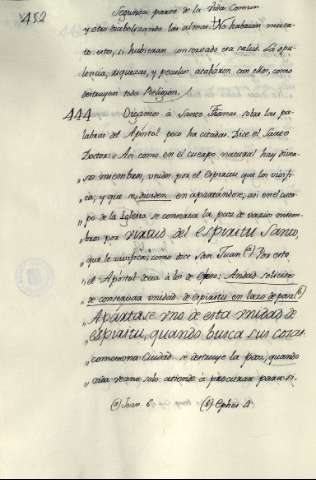 452
Segunda parte de la Vida Comun
y otro trabolizando las almas. No habrian muerto estos, si hubieran conservado esta salud. La opulencia, riquezas, y peculio acabaron con ellos, como destruyen toda Religion.
444 Oigamos à Santo Thomas sobre las palabras del Apóstol poco ha citadas. Dice el Santo
Doctor: Asi como en el cuerpo natural hay diver-
„ sos miembros, unidos por el espiritu que los vivifi-
„ ca; y que se dividen en apartandose, asi en el cuer-
„ po de la Iglesia se conserva la paz de varios miem-
„ bros por virtud del espiritu Santo,
„ que le vivifica, como dice San Juan. (1) Por esto
„ el Apóstol decia à los de Efeso: Andad solicitos
„ de conservar unidad de espiritu en lazo de paz. (2)
„ Apartase uno de esta unidad de
„ espiritu, quando busca sus cosas
„ como en una Ciudad se destruye la paz, quando
„ cada vecino solo atiende à procurar para si.
(1) Joan. 6. (2) Ephes. 4